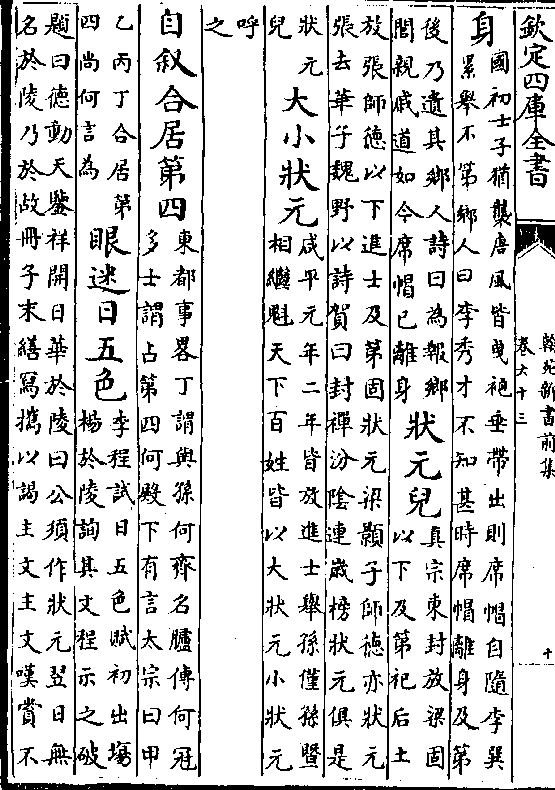 欽定四庫全書
翰苑新書前集
卷六十三
十
身
國初士子猶襲唐風皆曳袍垂帶出則席帽自隨李巽
累舉不第鄉人曰李秀才不知甚時席帽離身及第
後乃遺其鄉人詩曰為報鄉
閭親戚道如今席帽已離身
狀元兒
真宗東封放梁固
以下及第祀后土
放張師德以下進士及第固狀元梁顥子師德亦狀元
張去華子魏野以詩賀曰封禪汾陰連歲榜狀元俱是
狀元
兒
大小狀元
咸平元年二年皆放進士舉孫僅孫暨
相繼魁天下百姓皆以大狀元小狀元
呼
之
自叙合居第四
東都事畧丁謂與孫何齊名臚傳何冠
多士謂占第四何殿下有言太宗曰甲
乙丙丁合居第
四尚何言為
眼迷日五色
李程試日五色賦初出塲
楊於陵詢其文程示之破
題曰德動天鑒祥開日華於陵曰公須作狀元翌日無
名於陵乃於故冊子末繕寫攜以謁主文主文嘆賞不